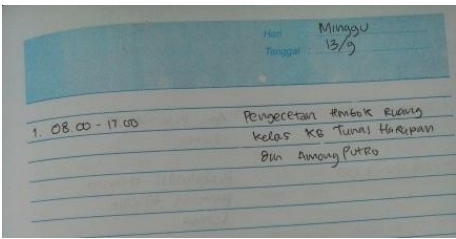 Hari Minggu
Tanggal : 13/9
1. 08.00 - 17.00 Pengecetan tembok Ruang
kelas KB Tunas Harapan
dan Among Putro